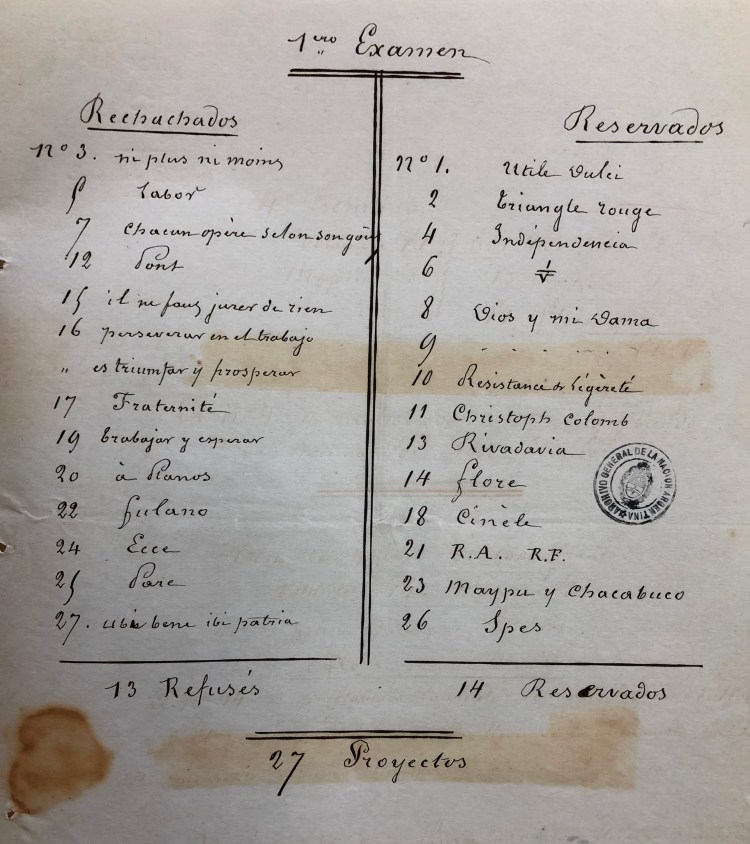 1ero Examen
Rechachados
Nº 3. ni plus ni moins
5 Labor
7 Chacun opère selon son goût
12 Pont
15 il ne faut jurer de rien
16 perseverar en el trabajo
" es triumfar y prosperar
17 Fraternité
19 trabajar y esperar
20 à
22 fulano
24 Ecce
25 Parc
27. ubi bene ibi patria
13 Refusés
Reservados
Nº 1. Utile Dulci
2 triangle rouge
4 Indépendencia
6
8 Dios y mi Dama
9 . . . . .
10 Résistance & légèreté
11 Christoph Colomb
13 Rivadavia
14 flore
18
21 R.A. R.F.
23 Maypu y Chacabuco
26 Spes
14 Reservados
27 Proyectos
ARCHIVO GENERAL DE LA NACION ARGENTINA